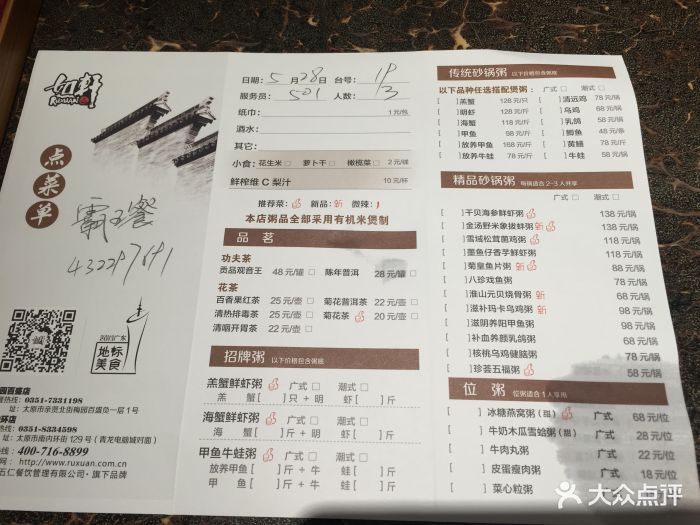 如轩
RUXUAN
点菜单
霸王餐
2013广东
地标
美食
园百盛店
热线：0351-7331198
址：太原市亲贤北街梅园百盛负一层1号
环店
热线：0351-8334598
址：太原市南内环街129号（青龙电脑城对面）
热线：400-716-8899
网：http://www.ruxuan.com.cn
五仁餐饮管理有限公司·旗下品牌
日期：5月28日 台号：
服务员：501 人数：
纸巾： 1元/包
酒水：
其它：
小食：花生米 □ 萝卜干 □ 橄榄菜 □ 2元/碟
鲜榨维C梨汁 10元/杯
推荐菜： 新品：新 微辣：
本店粥品全部采用有机米煲制
品茗
功夫茶
贡品观音王 48元/罐 □ 陈年普洱 28元/罐 □
花茶
百香果红茶 25元/壶 □ 菊花普洱茶 22元/壶 □
清热排毒茶 25元/壶 □ 菊花茶 20元/壶 □
清咽开胃茶 22元/壶 □
招牌粥 以下价格包含粥底
羔蟹鲜虾粥 广式 □ 潮式 □
羔 蟹[ ]只+明 虾[ ]斤
海蟹鲜虾粥 广式 □ 潮式 □
海 蟹[ ]斤+明 虾[ ]斤
甲鱼牛蛙粥 广式 □ 潮式 □
放养甲鱼[ ]斤+牛 蛙[ ]斤
甲 鱼[ ]斤+牛 蛙[ ]斤
传统砂锅粥 以下价格包含粥底
以下品种任选搭配煲粥 广式 □ 潮式 □
[ ]羔蟹 128元/只 [ ]清远鸡 78元/锅
[ ]明虾 128元/斤 [ ]乌鸡 68元/锅
[ ]海蟹 118元/斤 [ ]乳鸽 58元/锅
[ ]甲鱼 98元/斤 [ ]鲫鱼 48元/条
[ ]放养甲鱼 168元/斤 [ ]黄鳝 78元/斤
[ ]放养牛蛙 78元/斤 [ ]牛蛙 58元/锅
精品砂锅粥 每锅适合2-3人共享
广式 □ 潮式 □
[ ]干贝海参鲜虾粥 138元/锅
[ ]金汤野米象拔鲜粥新 138元/锅
[ ]雪域松茸菌鸡粥 98元/锅
[ ]墨鱼仔香芋鲜虾粥 98元/锅
[ ]菊皇鱼片粥新 88元/锅
[ ]八珍戏鱼粥 78元/锅
[ ]淮山元贝烧骨粥新 68元/锅
[ ]滋补玛卡乌鸡粥新 98元/锅
[ ]滋阴养阳甲鱼粥 98元/锅
[ ]补血养颜乳鸽粥 68元/锅
[ ]核桃乌鸡健脑粥 78元/锅
[ ]珍荟五福粥 58元/锅
位粥 位粥适合1人享用
[ ]冰糖燕窝粥(甜) 广式 68元/位
[ ]牛奶木瓜雪蛤粥(甜) 广式 28元/位
[ ]牛肉丸粥 广式 22元/位
[ ]皮蛋瘦肉粥 广式 18元/位
[ ]菜心粒粥
大众点评